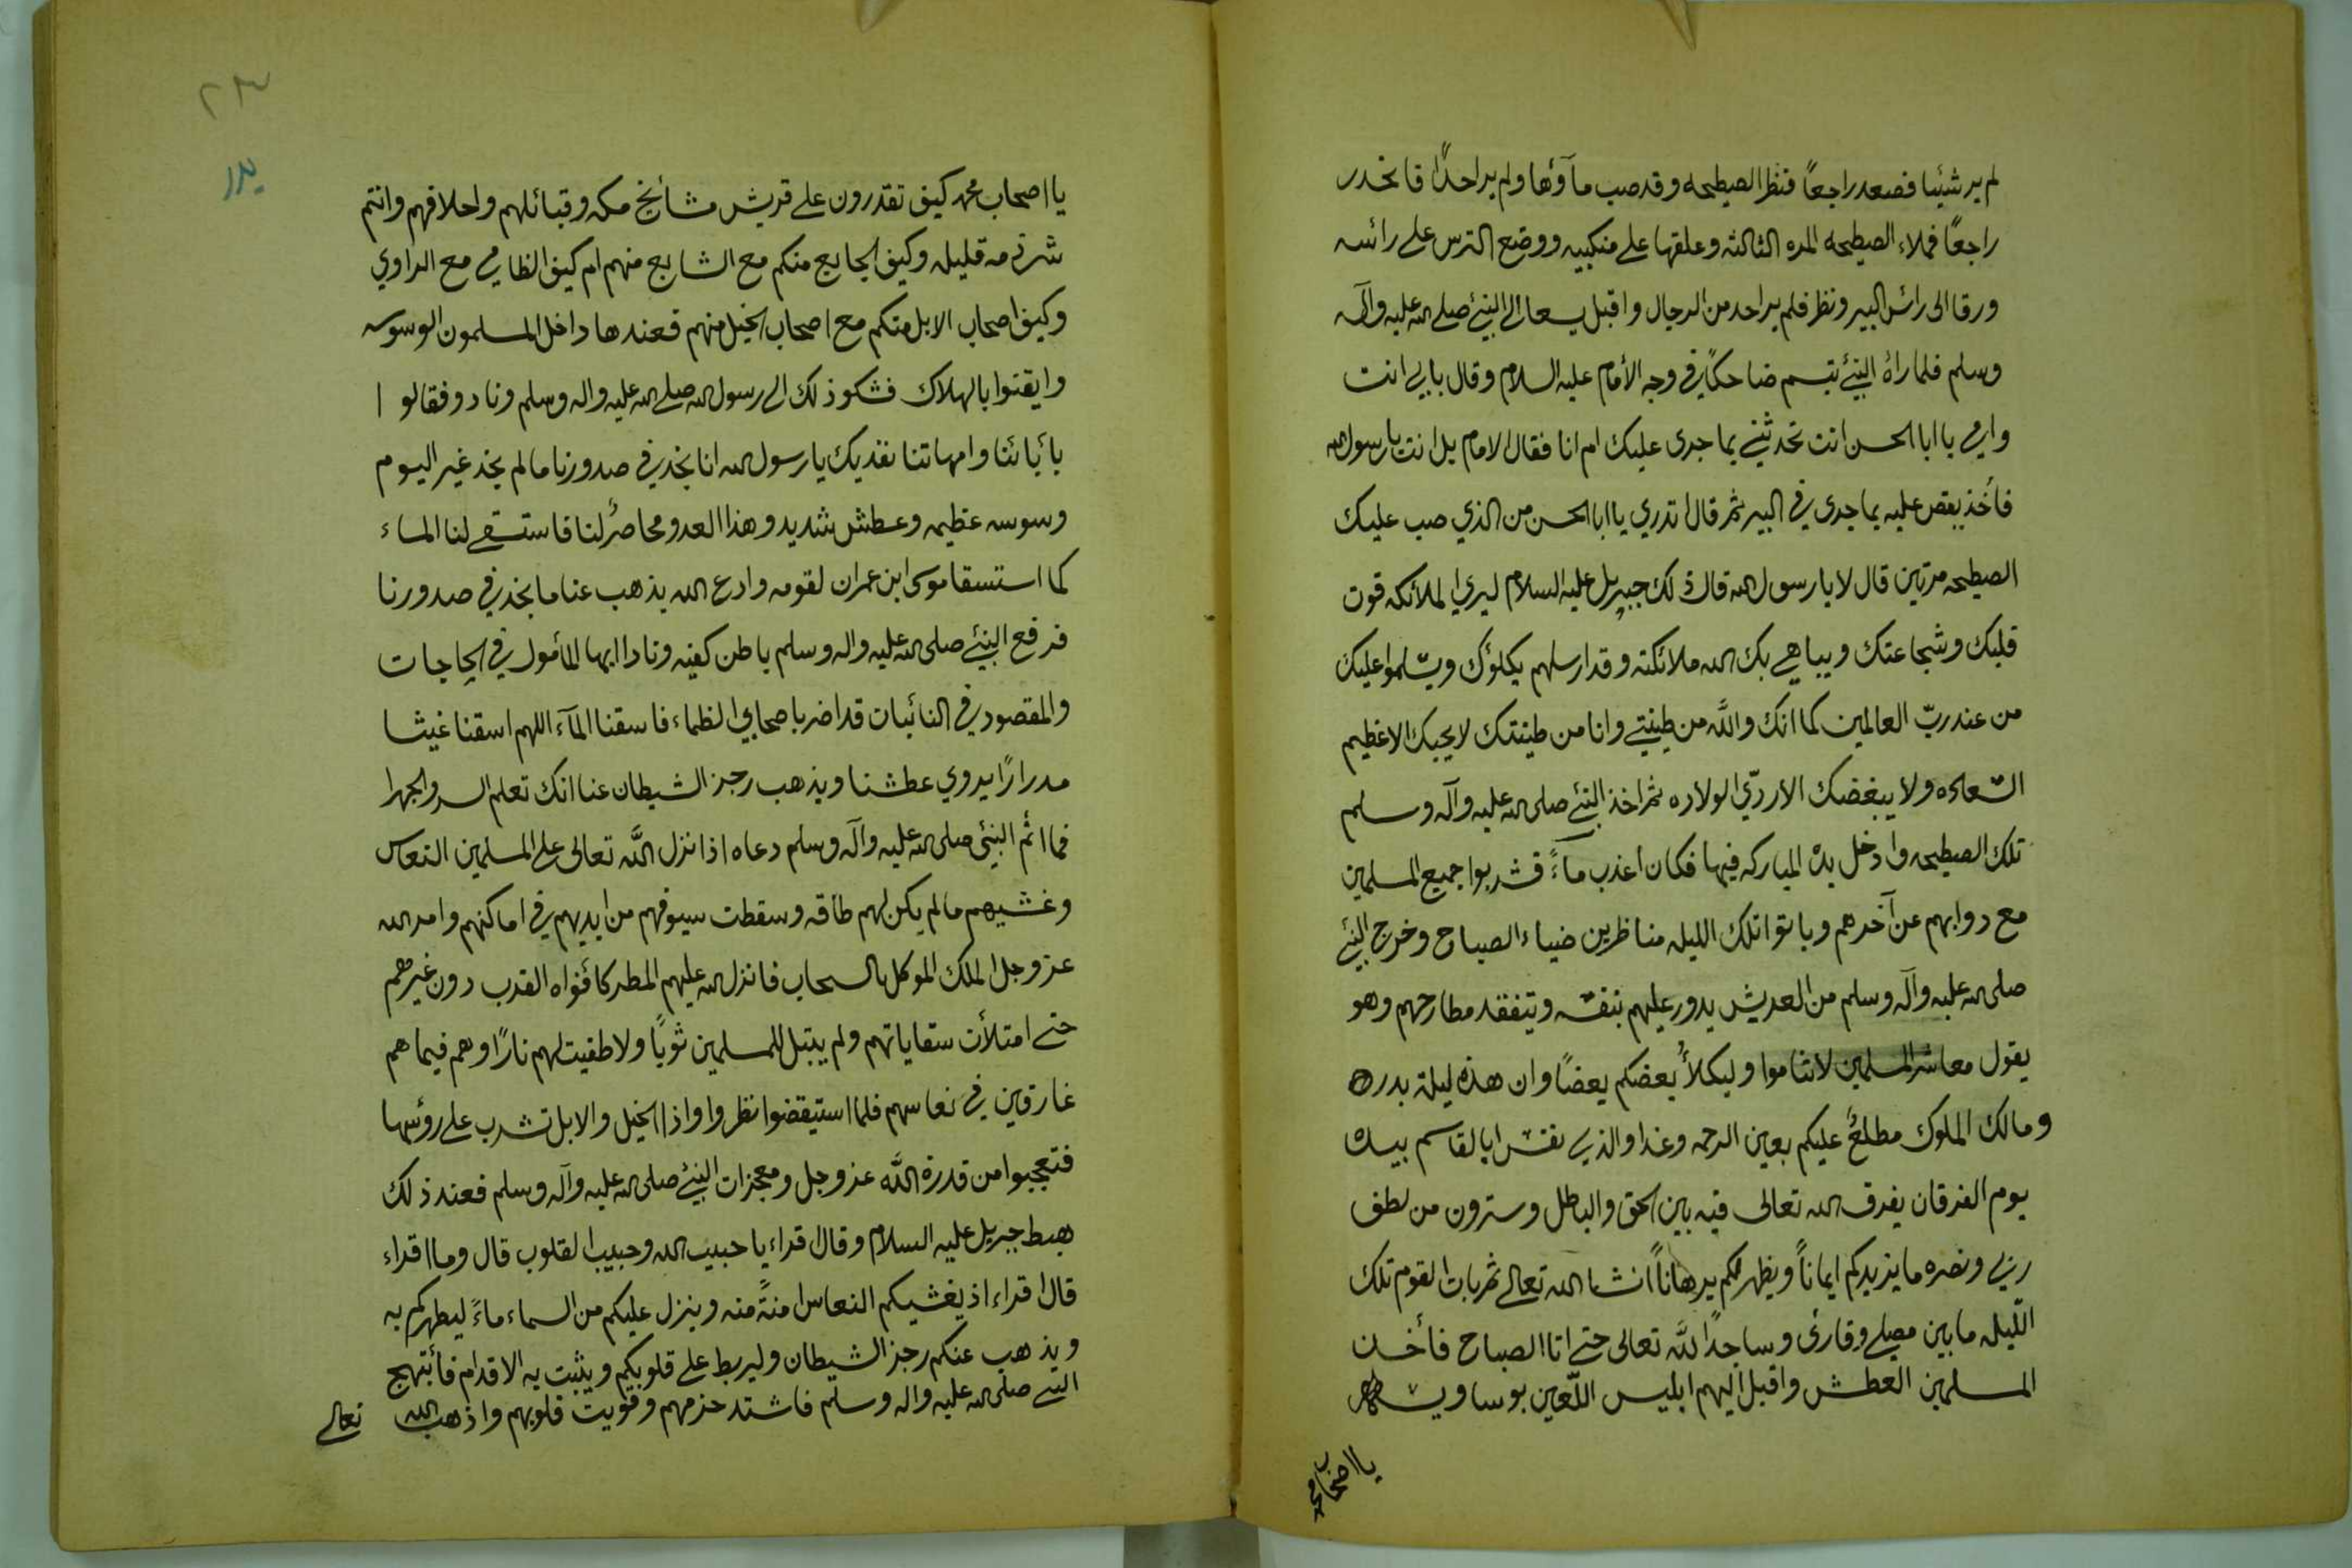 لم ير شئيا فصعد راجعاً فنظر الصيطحه وقد صب مآؤها ولم ير احداً فانحدر
راجعاً فملاء الصيطحه المره الثالثه وعلقها على منكبيه ووضع الترس على رائسه
ورقا الى رائس البير ونظر فلم ير احد من الرجال واقبل يسعا الى النبئ صلى الله عليه وآله
وسلم فلما راهٔ النبئ تبسم ضاحكاً في وجه الأمام عليه السلام وقال بابي انت
وامي يا ابا الحسن انت تحدثني بما جرى عليك ام انا فقال الامام بل انت يا رسول الله
فأخذ يقص عليه بما جرى في البير ثم قال اتدري يا ابا الحسن من الذي صب عليك
الصيطحه مرتين قال لا يا رسول الله قال ذلك جبريل عليه السلام ليري الملائكه قوت
قلبك وشجاعتك ويباهي بك الله ملائكته وقد ارسلهم يكلؤك ويسلموا عليك
من عند ربّ العالمين كما انك واللّه من طينتي وانا من طينتك لا يحبك الا عظيم
السعاده ولا يبغضك الا ردّي الولاده ثم اخذ النبئ صلى الله عليه وآله وسلم
تلك الصيطحه وادخل يده المباركه فيها فكان اعذب ماءً فشربوا جميع المسلمين
مع دوابهم عن آخرهم وباتوا تلك الليله مناظرين ضياء الصباح وخرج النبئ
صلى الله عليه وآله وسلم من العريش يدور عليهم بنفسه ويتفقد مطارحهم وهو
يقول معاشر المسلمين لا تناموا وليكلأُ بعضكم بعضاً وان هذه ليلة بدر
ومالك الملوك مطلعٌ عليكم بعين الرحمه وغدا والذي نفس ابا القاسم بيده
يوم الفرقان يفرق الله تعالى فيه بين الحق والباطل وسترون من لطف
ربي ونصره ما يزيدكم ايماناً ويظهر لكم برهاناً انشا الله تعالى ثم بات القوم تلك
اللّيله ما بين مصلي وقارئ وساجداً للّه تعالى حتى اتا الصباح فأخذ
المسلمين العطش واقبل اليهم ابليس اللّعين بوساويسه
يا اصحاب محمد
٢٣
بدر
يا اصحاب محمد كيف تقدرون على قريش مشائخ مكه وقبائلهم واحلافهم وانتم
شرذمه قليله وكيف الجايع منكم مع الشابع منهم ام كيف الظامي مع الراوي
وكيف اصحاب الابل منكم مع اصحاب الخيل منهم فعندها داخل المسلمون الوسوسه
وايقنوا بالهلاك فشكو ذلك الى رسول الله صلى الله عليه واله وسلم ونادو فقالوا
بأبائنا وامهاتنا نفديك يا رسول الله انا نجد في صدورنا ما لم نجد غير اليوم
وسوسه عظيمه وعطش شديد وهذا العدو محاصرٌ لنا فاستسقي لنا الماء
كما استسقا موسى ابن عمران لقومه وادع الله يذهب عنا ما نجد في صدورنا
فرفع النبئ صلى الله عليه واله وسلم باطن كفيه ونادا ايها المأمول في الحاجات
والمقصود في النائبات قد اضر باصحابي الظماء فاسقنا المآء اللهم اسقنا غيثا
مدراراً يروي عطشنا ويذهب رجز الشيطان عنا انك تعلم السر والجهرا
فما اتم النبئ صلى الله عليه وآله وسلم دعاه اذا نزل اللّه تعالى على المسلمين النعاس
وغشيهم ما لم يكن لهم طاقه وسقطت سيوفهم من ايديهم في اماكنهم وامر الله
عز وجل الملك الموكل بالسحاب فانزل الله عليهم المطر كأفواه القرب دون غيرهم
حتى امتلأت سقاياتهم ولم يبتل للمسلمين ثوباً ولا طفيت لهم ناراً وهم فيما هم
غارقين في نعاسهم فلما استيقضوا نظروا واذا الخيل والابل تشرب على رؤسها
فتعجبوا من قدرة اللّه عز وجل ومعجزات النبئ صلى الله عليه وآله وسلم فعند ذلك
هبط جبريل عليه السلام وقال اقراء يا حبيب الله وحبيب القلوب قال وما اقراء
قال اقراء اذ يغشيكم النعاس امنةً منه وينزل عليكم من السماء ماءً ليطهركم به
ويذهب عنكم رجز الشيطان وليربط على قلوبكم ويثبت به الاقدام فأبتهج
النبي صلى الله عليه واله وسلم فاشتد حزمهم وقويت قلوبهم واذهب الله تعالى